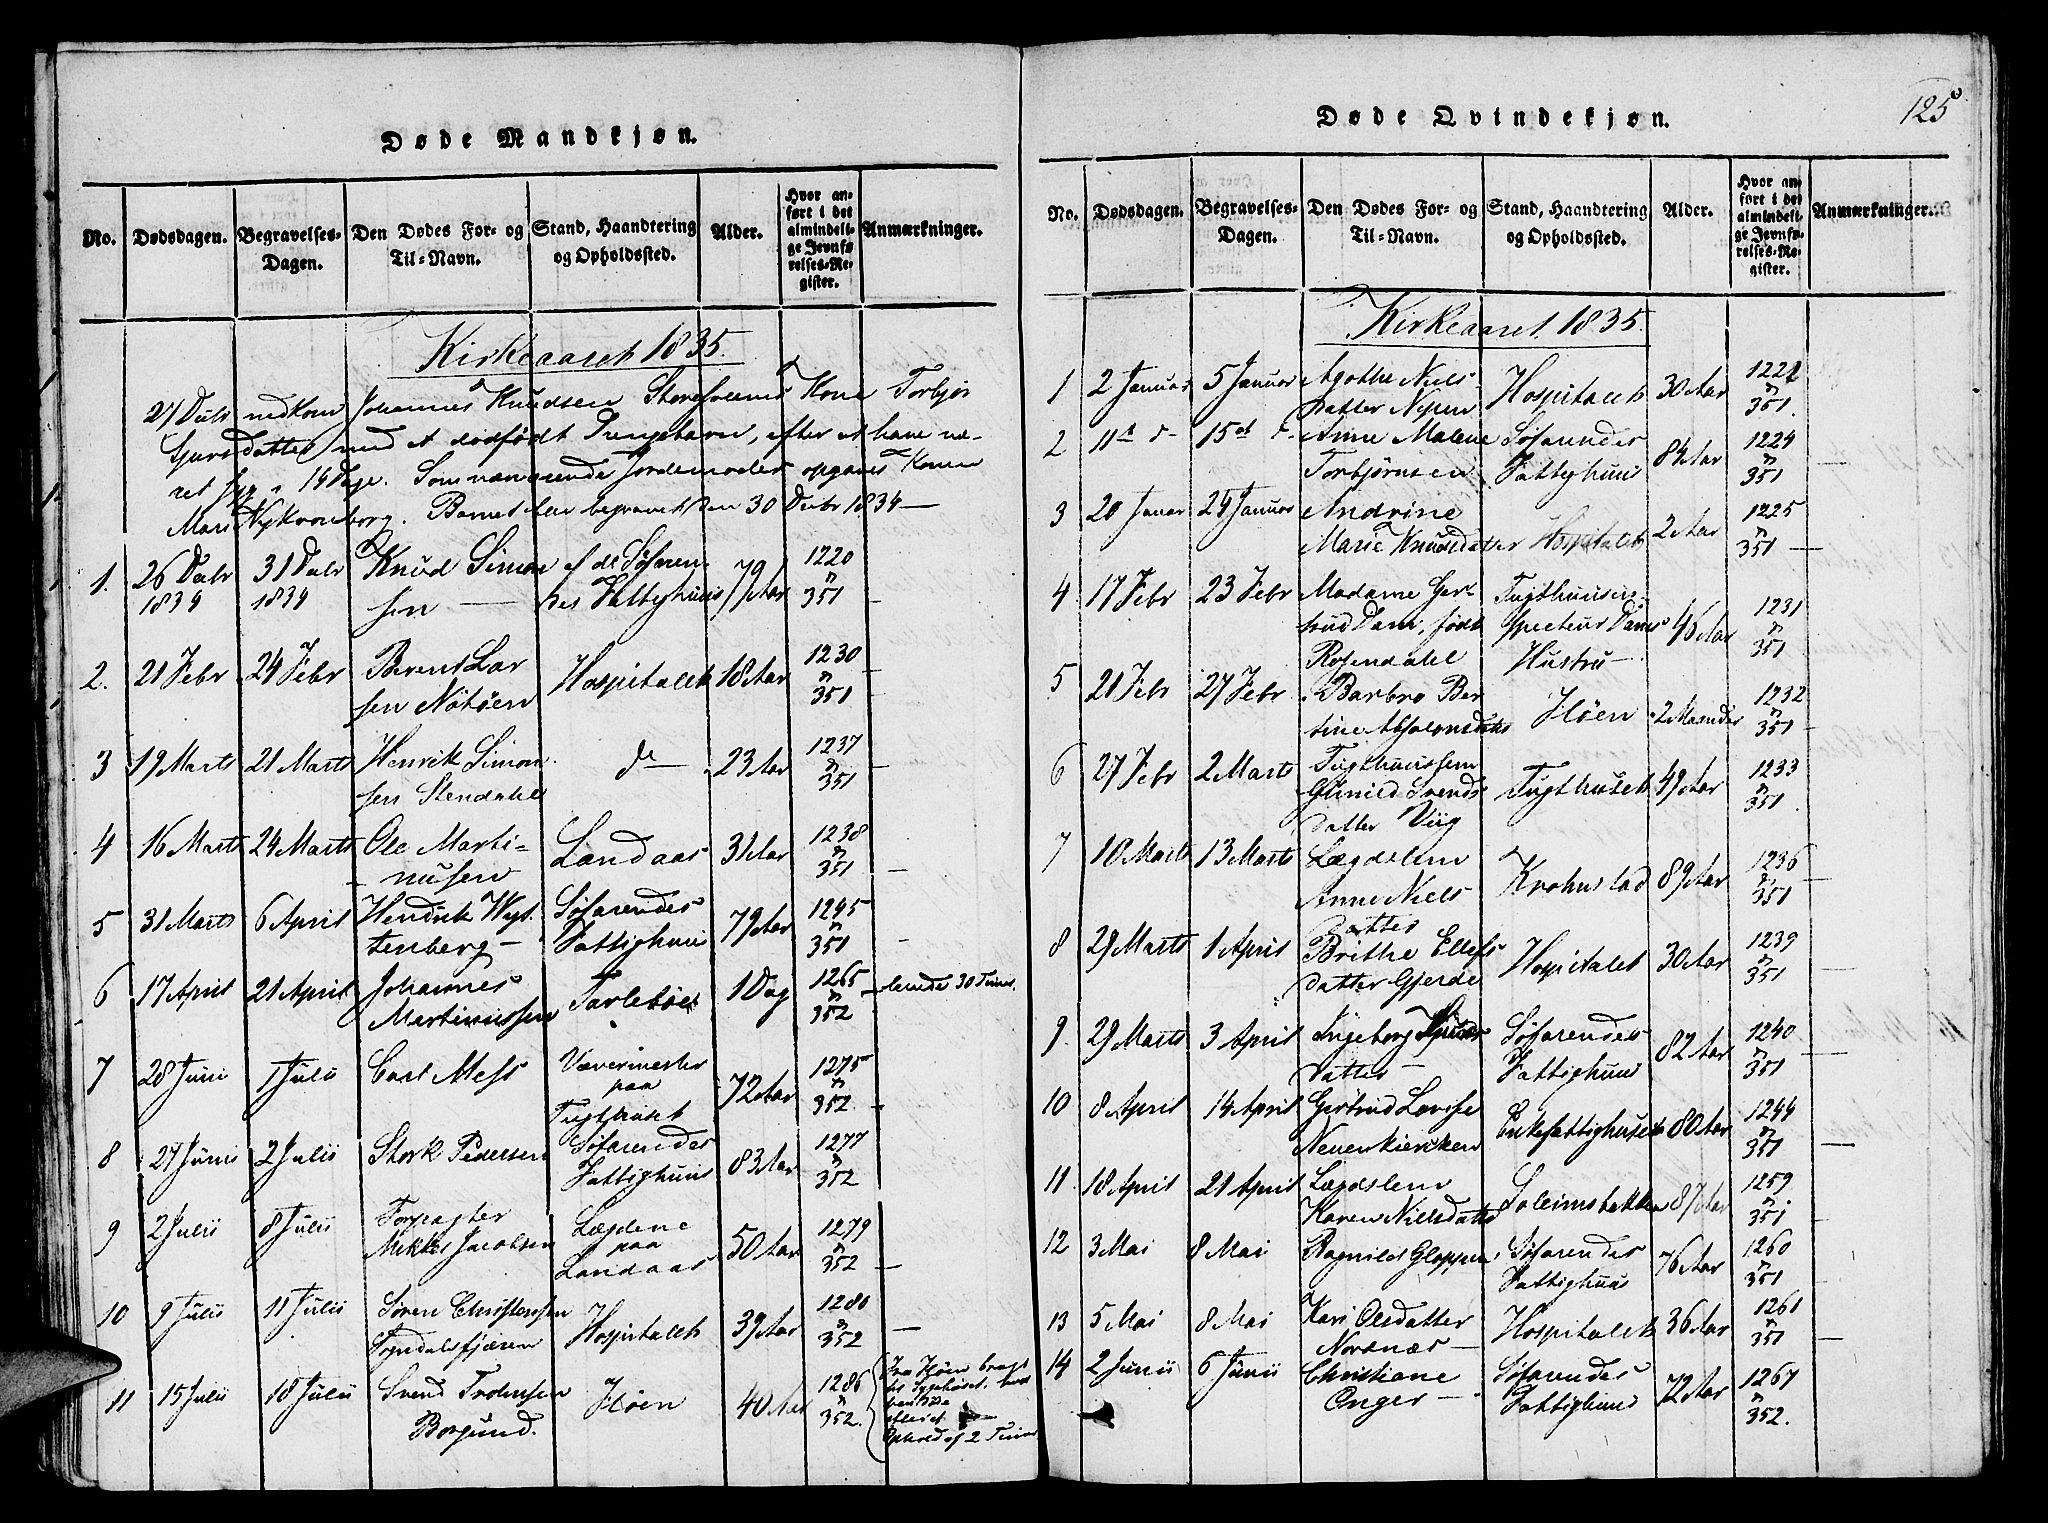 Døde Mandkjøn.
No. Dødsdagen. Begravelses-Dagen. Den Dødes For- og Til-Navn. Stand, Haandtering og Opholdssted. Alder. Hvor anført i det almindelige Jevnførelses-Register. Anmærkninger.
Kirkeaaret 1835.
27 Decbr nedkom Johannes Knudsen Kone Torbjør
med et dødfødt Drengebarn, efter at have væ-
ret syg i 14 Dage. Somnærværende Jordemoder opgaves Konen
Mari Nykronborg. Barnet blev begravet den 30 Decbr 1834 —
1. 26 Decbr 31 Decbr Knud Simon- af de Søfaren- 79 Aar 1220
1834 1834 sen — des Fattighuus 351 —
2. 21 Febr 24 Febr Berent Lar Hospitalet 18 Aar 1230
sen Nötöen 351 —
3 19 Marts 21 Marts Henrik Simon- do 23 Aar 1237
sen Stendahl 351 —
4 16 Marts 24 Marts Ole Marti- Landaas 31 Aar 1238
nusen 351 —
5 31 Marts 6 April Hendrik Wyt- Søfarendes 79 Aar 1245
tenberg — Fattighuus 351 —
6 17 April 21 April Johannes Tarlebøe 1 Dag 1265 levede 30 Timer.
Martinussen 352
7 28 Juni 1 Julii Carl Mess Vævermester 72 Aar 1275
paa 352. —
Tugthuset
8 27 Junii 2 Julii Stork Pedersen Søfarendes 83 Aar 1277
Fattighuus 352
9 2 Julii 8 Julii Forpagter Lægdene 50 Aar 1279
Mikkel Jacobsen paa 352 —
Landaas
10 9 Julii 11 Julii Søren Christensen Hospitalet 39 Aar 1280
Sogndalsfjæren 352 —
11 15 Julii 18 Julii Svend Trohnsen Høen 40 Aar 1286 Fra Høen bragt
Borgund. 352.
efter et
Ophold af 2 Timer
125
Døde Qvindekjøn.
No. Dødsdagen. Begravelses-Dagen. Den Dødes For- og Til-Navn. Stand, Haandtering og Opholdssted. Alder. Hvor anført i det almindelige Jevnførelses-Register. Anmærkninger.
Kirkeaaret 1835.
1 2 Januar 5 Januar Agothe Niels- Hospitalet 30 Aar 1221
datter Nipen 351.
2 11te d- 15de d- Anne Malene Søfarendes 84 Aar 1224
Torbjørnsen Fattighuus 351 —
3 20 Januar 24 Januar Andrine 2 Aar 1225
Marie Knudsdatter Hospitalet 351 —
4 17 Febr 23 Febr Madame Ger- Tugthuusin- 46 Aar 1231
trud Dam, født specteur Dams 351
Rosendahl Hustru —
5 21 Febr 27 Febr Barbro Ber Høen 2 Maaneder 1232
tine Absalonsdatter 351 —
6 27 Febr 2 Marts Tugthuuslem Tugthuset 49 Aar 1233
Gunild Svends 351.
datter Viig
7 10 Marts 13 Marts Lægdslem Krohnstad 89 Aar 1236
Anne Niels 351 —
datter
8 29 Marts 1 April Brithe Ellefs Hospitalet 30 Aar 1239
datter Gjerde 351 —
9. 29 Marts 3 April Ingeborg Søfarendes 82 Aar 1240
datter — Fattighuus 351
10 8 April 14 April Gertrud Lovise Enkefattighuset 80 Aar 1244
Neuenkiercken 351 —
11. 18 April 21 April Lægdslem Soleimsbakken 87 Aar 1259
Karen Nielsdatter 351 —
12 3 Mai 8 Mai Ragnild Gloppen Søfarendes 76 Aar 1260
Fattighuus 351 —
13 5 Mai 8 Mai Kari Olsdatter Hospitalet 36 Aar 1261
Nornæs — 351 —
14 2 Junii 6 Junii Christiane Søfarendes 72 Aar 1267
Onger — Fattighuus 352.